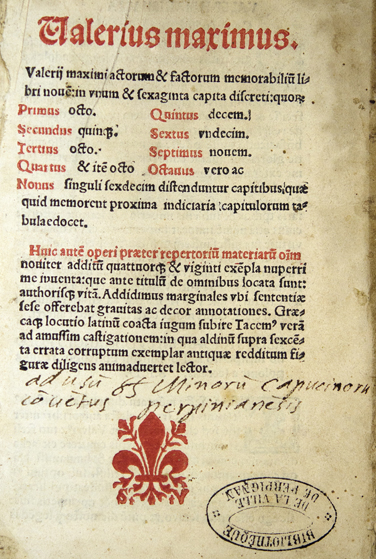 Valerius maximus.
Valerij maximi actorum & factorum memorabiliū li-
bri nouē: in vnum & sexaginta capita discreti: quoꝝ
Primus octo. Quintus decem.
Secundus quinqꝫ. Sextus vndecim.
Tertius octo. Septimus nouem.
Quartus & itē octo Octauus vero ac
Nonus singuli sexdecim distenduntur capitibus, quæ
quid memorent proxima indiciaria capitulorum ta-
bula edocet.
Huic autē operi præter repertorium materiarū oīm
nouiter additū quattuorqꝫ & viginti exēpla nuperri
me inuenta: que ante titulū de ominibus locata sunt:
authorisqꝫ vitā. Addidimus marginales vbi sententiæ
sese offerebat grauitas ac decor annotationes. Græ-
caqꝫ locutio latinū coacta iugum subire Tacemꝰ verā
ad amussim castigationem: in qua aldinū supra sexcē-
ta errata corruptum exemplar antiquæ redditum fi-
guræ diligens animaduertet lector.
ad usū ff Minorū capucinorū
cōuētus perpinianēsis
BIBLIOTHÈQUE
DE LA VILLE
DE PERPIGNAN